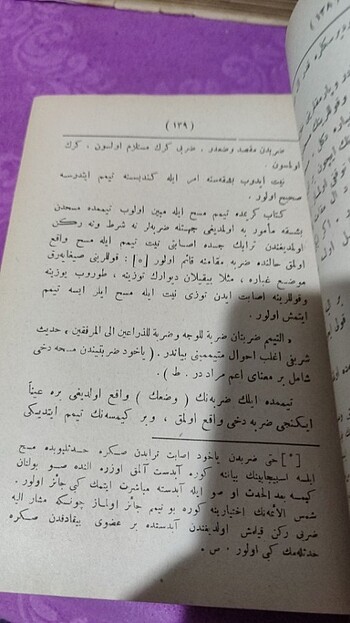 ( ١٣٩ )
ضربدن مقصد وضعدر ، ضربى كرك مستلزم اولسون ، كرك
اولماسون .
نيت ايدوب بشقه‌سنه امر ايله كنديسنه تيمم ايتديرسه
صحيح اولور .
كتاب كريمده تيمم مسح ايله مبين اولوب تيممده مسحدن
بشقه مأمور به اولمديغى جهتله ضربه‌لر نه شرط ونه ركن
اولمديغندن ترابك جسده اصابتى نيت تيمم ايله مسح واقع
اولمق حالنده ضربه مقامنه قائم اولور [*] : قوللرينى صيغايه‌رق
موضع غباره ، مثلا ييقيلان ديوارك توزينه ، طوروب يوزينه
وقوللرينه اصابت ايدن توزى نيت ايله مسح ايلر ايسه تيمم
ايتمش اولور .
« التيمم ضربتان ضربة للوجه وضربة للذراعين الى المرفقين » حديث
شريفى اغلب احوال متيممينى بياندر . ( ياخود ضربتيندن مسحه دخى
شامل بر معناى اعم مراد در . ط ) .
تيممده ايلك ضربه‌نك ( وضعك ) واقع اولديغى يره عيناً
ايكنجى ضربه دخى واقع اولمق ، وبر كيمسه‌نك تيمم ايتديكى
[*] حتى ضربدن ياخود اصابت ترابدن صكره حدثليوبده مسح
ايلسه اسبيجابينك بياننه كوره آبدست آلمق اوزره النده صو بولنان
كيمسه بعد الحدث او صو ايله آبدسته مباشرت ايتمك كبى جائز اولور .
شمس الائمه‌نك اختيارينه كوره بو تيمم جائز اولماز چونكه مشار اليه
ضربى ركن قيلمش اولديغندن آبدستده بر عضوى ييقادقدن صكره
حدثله‌مك كبى اولور . س .